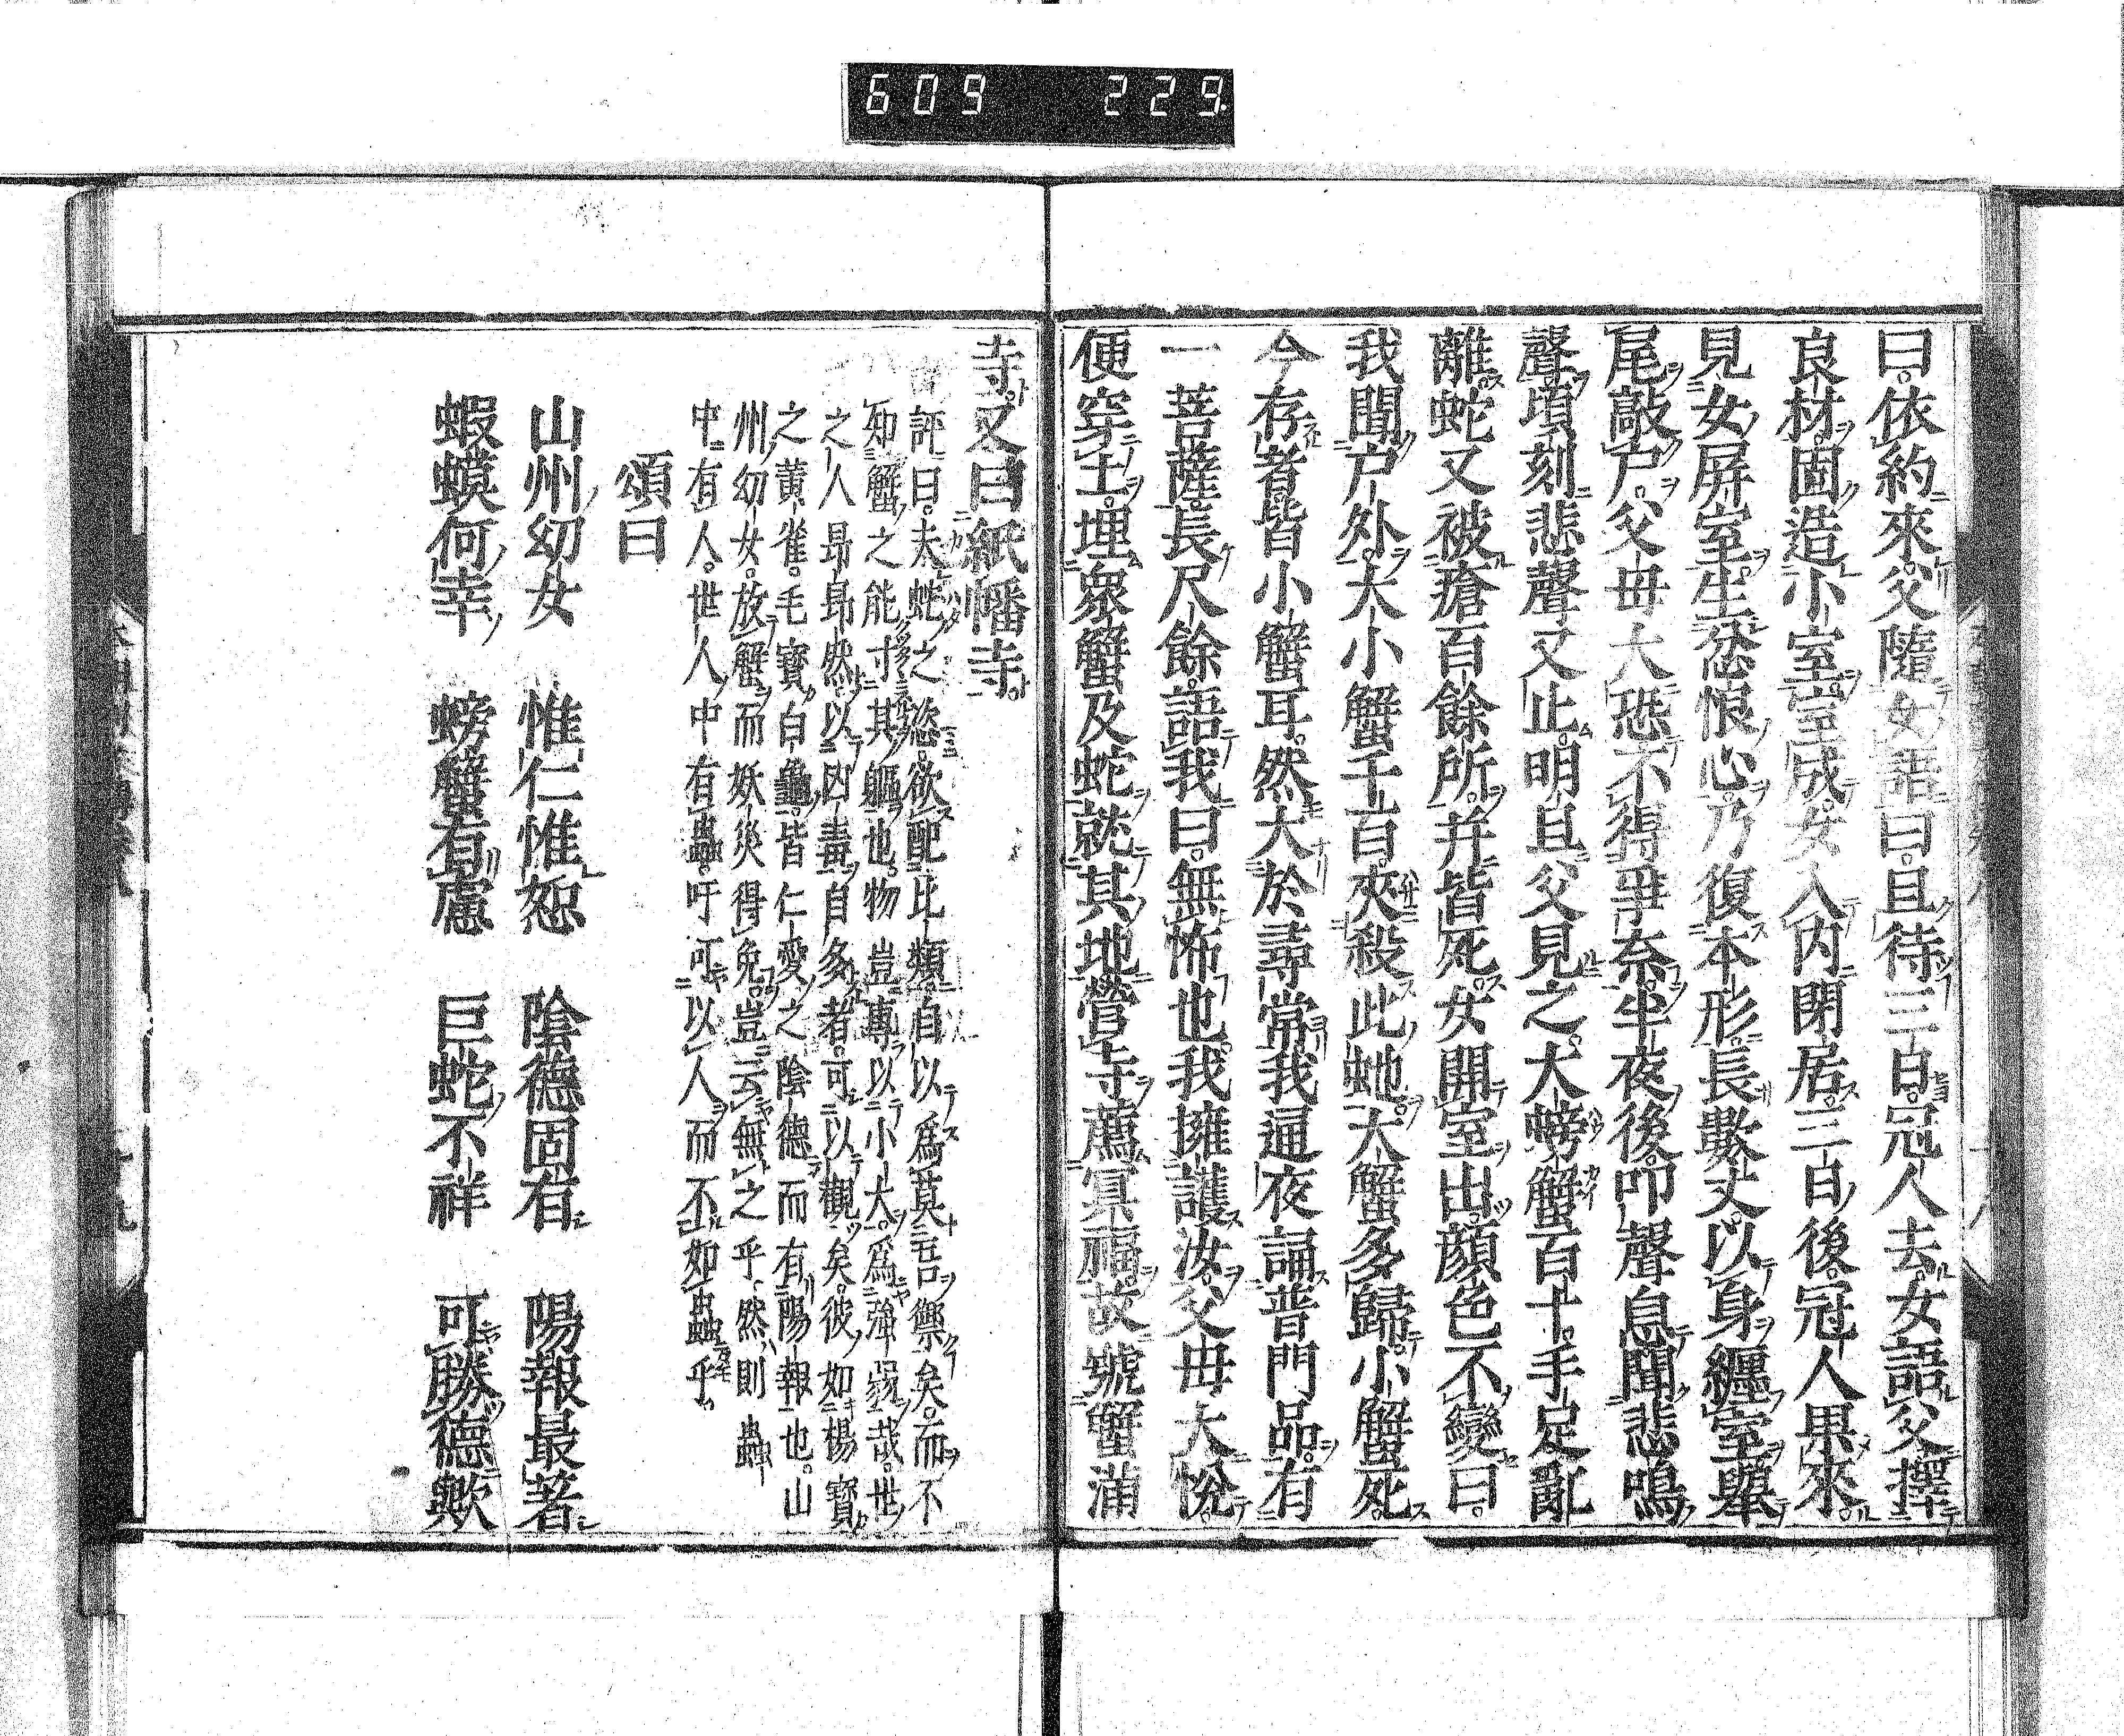 609 229
曰依約來父隨女語曰且待三日冠人去女語父擇
良材固造小室室成女入内閉居三日後冠人果來
見女屏室生忿恨心乃復本形長數丈以身纏室舉
尾敲戸父毋大恐不得爭奈半夜後叩聲息聞悲鳴
聲頃刻悲聲又止明旦父見之大螃蟹百十手足亂
離蛇又被瘡百餘所幷皆死女開室出顔色不變曰
我聞戸外大小蟹千百夾殺此虵大蟹多歸小蟹死
今存者皆小蟹耳然大於尋常我通夜誦普門品有
一菩薩長尺餘語我曰無怖也我擁護汝父毋大悅
便穿土埋衆蟹及蛇就其地營寺薦冥福故號蟹滿
寺又曰紙幡寺
評曰夫蛇之恣欲配比類自以爲莫吾禦矣而不
知蟹之能寸其軀也物豈專以小大爲強弱哉世
之人昂昂然以凶毒自多者可以觀矣彼如楊寶
之黄雀毛寶白龜皆仁愛之陰德而有陽報也山
州幼女放蟹而妖災得免豈云無之乎然則蟲
中有人世人中有蟲吁可以人而不如蟲乎
頌曰
山州幼女 惟仁惟恕 陰德固有 陽報最著
蝦蟆何幸 螃蟹有慮 巨蛇不祥 可勝德歟